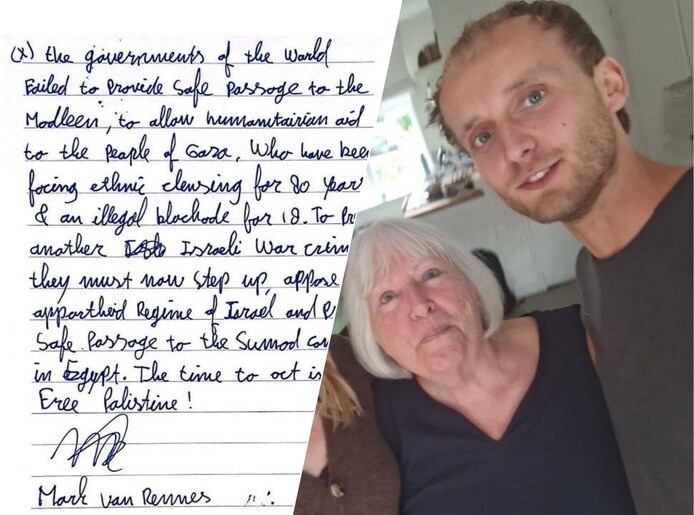 (x) the governments of the World
Failed to Provide Safe Passage to the
Madleen, to allow humanitairian aid
to the People of Gaza, Who have bee
facing ethnic clensing for 80 year
& an illegal blockade for 18. To Pr
another Israeli War crim
they must now step up, appose
appartheid Regime of Israel and P
Safe Passage to the Sumod co
in Egypt. The time to act is
Free Palistine!
Mark van Rennes